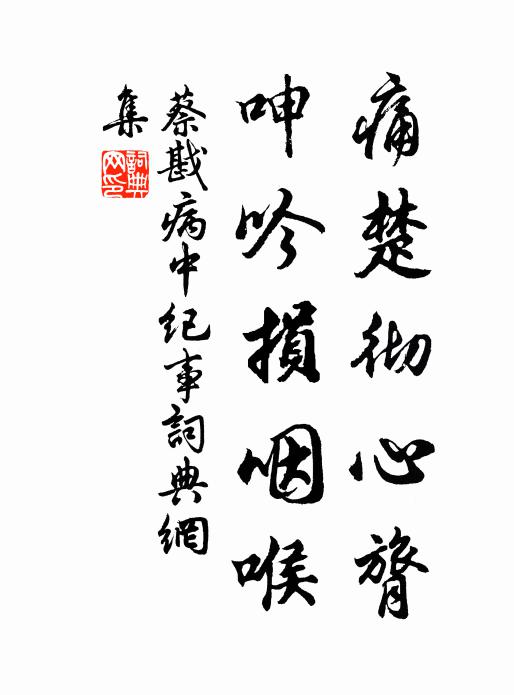 痛楚彻心膂
呻吟損咽喉
蔡戡病中纪事詞典網
集
詞典网印